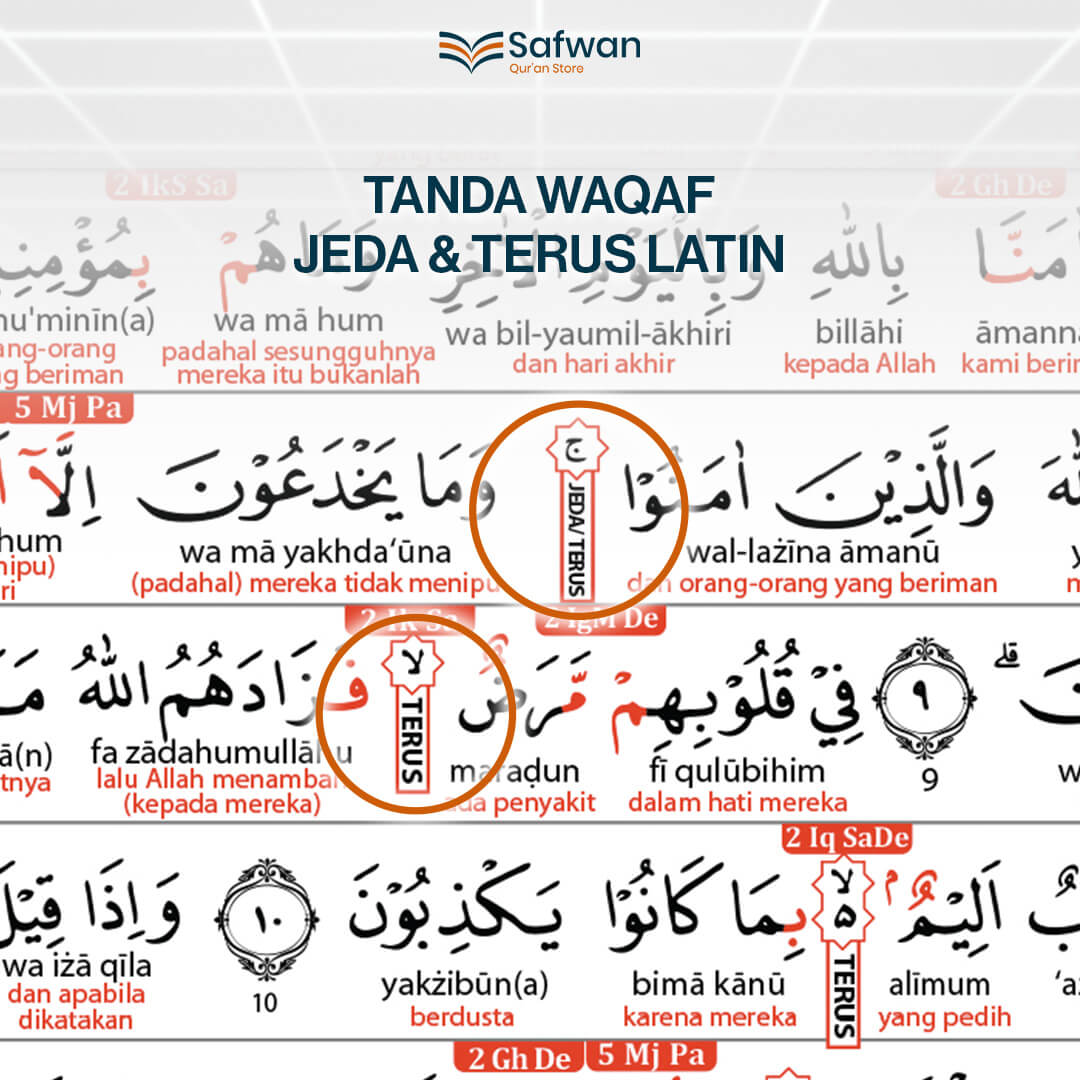 Safwan
Qur'an Store
TANDA WAQAF
JEDA & TERUS LATIN
2 IkS Sa
2 Gh De
بِاللّٰهِ وَبِالْيَوْمِ الْاٰخِرِ وَمَا هُمْ
āmanna billāhi wa bil-yaumil-ākhiri wa mā hum mu'minīn(a)
kepada Allah dan hari akhir padahal sesungguhnya mereka itu bukanlah
5 Mj Pa
وَالَّذِيْنَ اٰمَنُوْا ۚ وَمَا يَخْدَعُوْنَ اِلَّآ
JEDA/ TERUS
wal-lażīna āmanū wa mā yakhda‘ūna
dan orang-orang yang beriman (padahal) mereka tidak menipu
2 Ik Sa
2 IgM De
ۗ ٩ فِيْ قُلُوْبِهِمْ مَّرَضٌ ۙ فَزَادَهُمُ اللّٰهُ
TERUS
9 fī qulūbihim maraḍun fa zādahumullāhu
dalam hati mereka ada penyakit lalu Allah menambah (kepada mereka)
2 Iq SaDe
اَلِيْمٌ ۢ ۙ ٥ بِمَا كَانُوْا يَكْذِبُوْنَ ١٠ وَاِذَا قِيْلَ
TERUS
alīmum bimā kānū yakżibūn(a) 10 wa iżā qīla
yang pedih karena mereka berdusta dan apabila dikatakan
2 Gh De
5 Mj Pa